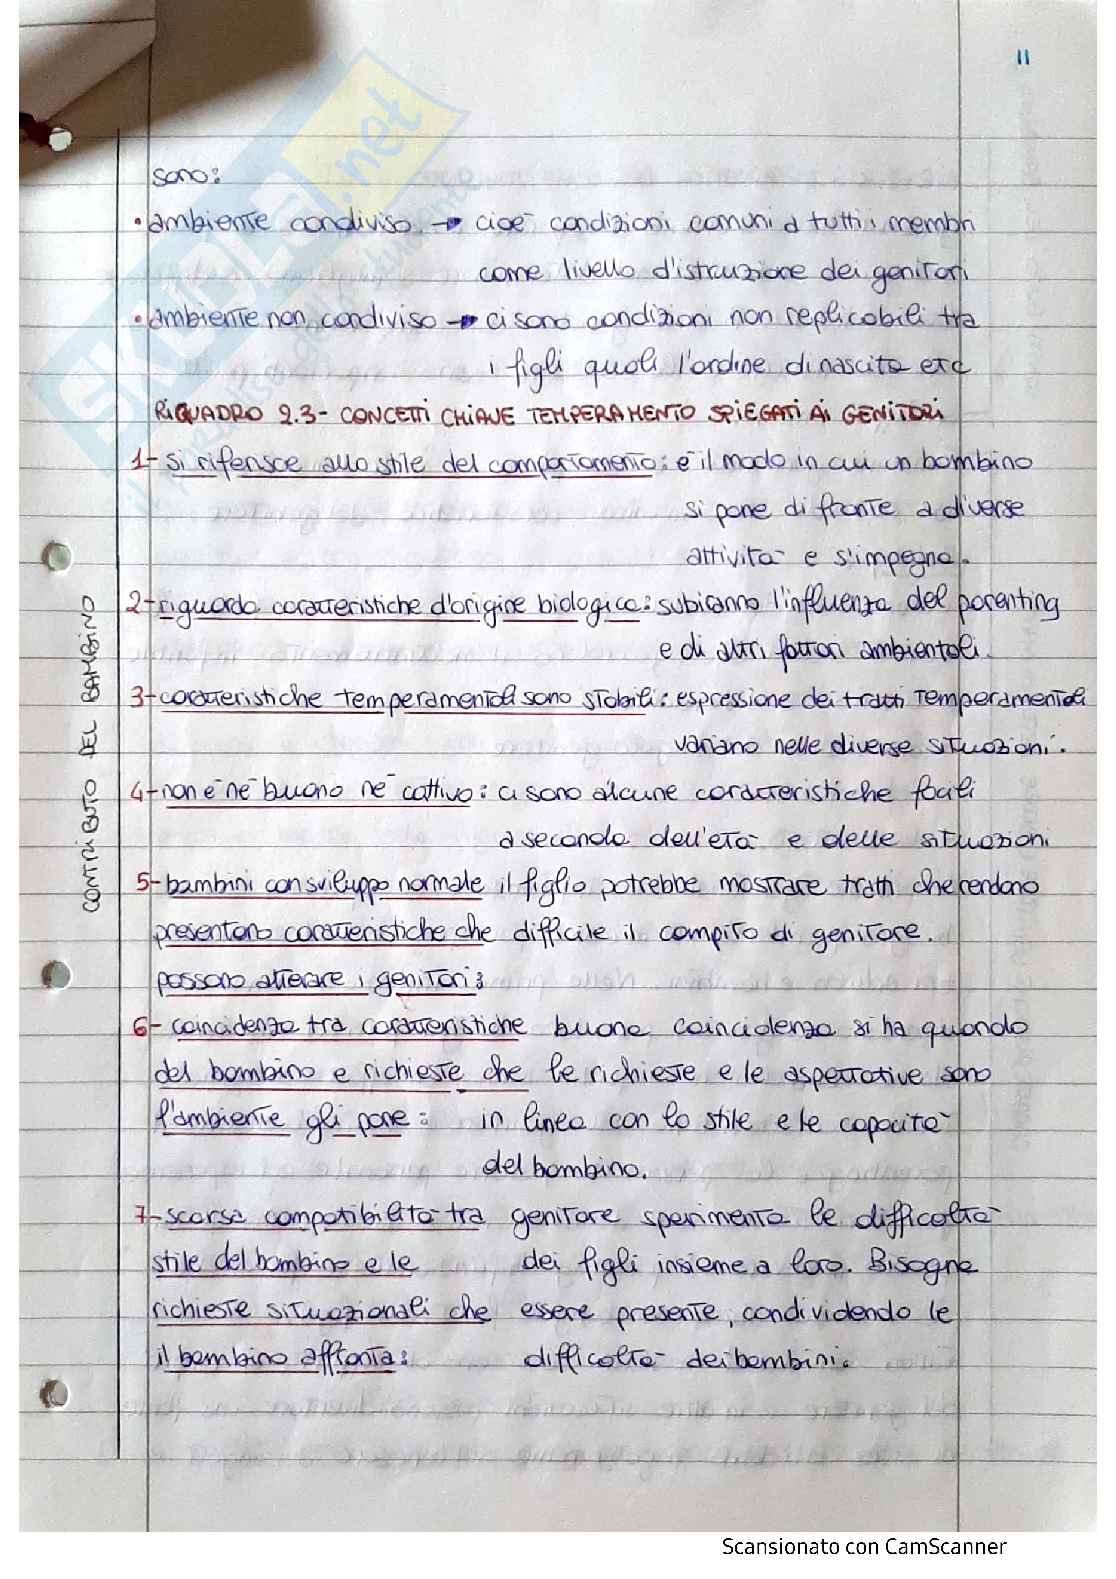 11
sono:
• ambiente condiviso → cioè condizioni comuni a tutti i membri
come livello d'istruzione dei genitori
• ambiente non condiviso → ci sono condizioni non replicabili tra
i figli quali l'ordine di nascita etc
RIQUADRO 2.3 - CONCETTI CHIAVE TEMPERAMENTO SPIEGATI AI GENITORI
1- si riferisce allo stile del comportamento: è il modo in cui un bambino
si pone di fronte a diverse
attività e s'impegna.
2- riguarda caratteristiche d'origine biologica: subiranno l'influenza del parenting
e di altri fattori ambientali.
3- caratteristiche temperamentali sono stabili: espressione dei tratti temperamentali
variano nelle diverse situazioni.
4- non è nè buono nè cattivo: ci sono alcune caratteristiche facili
a seconda dell'età e delle situazioni
5- bambini con sviluppo normale il figlio potrebbe mostrare tratti che rendano
presentano caratteristiche che difficile il compito di genitore.
possono atterare i genitori:
6- coincidenza tra caratteristiche buona coincidenza si ha quando
del bambino e richieste che le richieste e le aspettative sono
l'ambiente gli pone: in linea con lo stile e le capacità
del bambino.
7- scarsa compatibilità tra genitore sperimenta le difficoltà
stile del bambino e le dei figli insieme a loro. Bisogna
richieste situazionali che essere presente, condividendo le
il bambino affronta: difficoltà dei bambini.
CONTRIBUTO DEL BAMBINO
SKUOLA.net
Scansionato con CamScanner